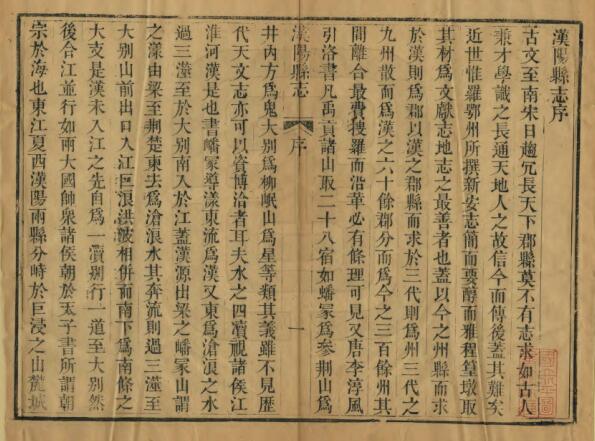 漢陽縣志序
古文至南宋日趨冗長天下郡縣莫不有志求如古人
兼才學識之長通天地人之故信今而傳後蓋其難矣
近世惟羅鄂州所撰新安志簡而要醇而雅程篁墩取
其材爲文獻志地志之最善者也蓋以今之州縣而求
於漢則爲郡以漢之郡縣而求於三代則爲州三代之
九州散而爲漢之六十餘郡分而爲今之三百餘州其
間離合最費搜羅而沿革必有條理可見又唐李淳風
引洛書凡禹貢諸山取二十八宿如嶓冢爲參荆山爲
漢陽縣志 序 一
井內方爲鬼大別爲柳岷山爲星等類其義雖不見歷
代天文志亦可以資博洽者耳夫水之四瀆視諸侯江
淮河漢是也書嶓冢導漾東流爲漢又東爲滄浪之水
過三澨至於大別南入於江蓋漢源出梁之嶓冢山謂
之漾由梁至荆楚東去爲滄浪水其奔流則過三澨至
大別山前出口入江巨浪洪波相併而南下爲南條之
大支是漢未入江之先自爲一瀆別行一道至大別然
後合江並行如兩大國帥衆諸侯朝於天子書所謂朝
宗於海也東江夏西漢陽兩縣分峙於巨浸之山麓城